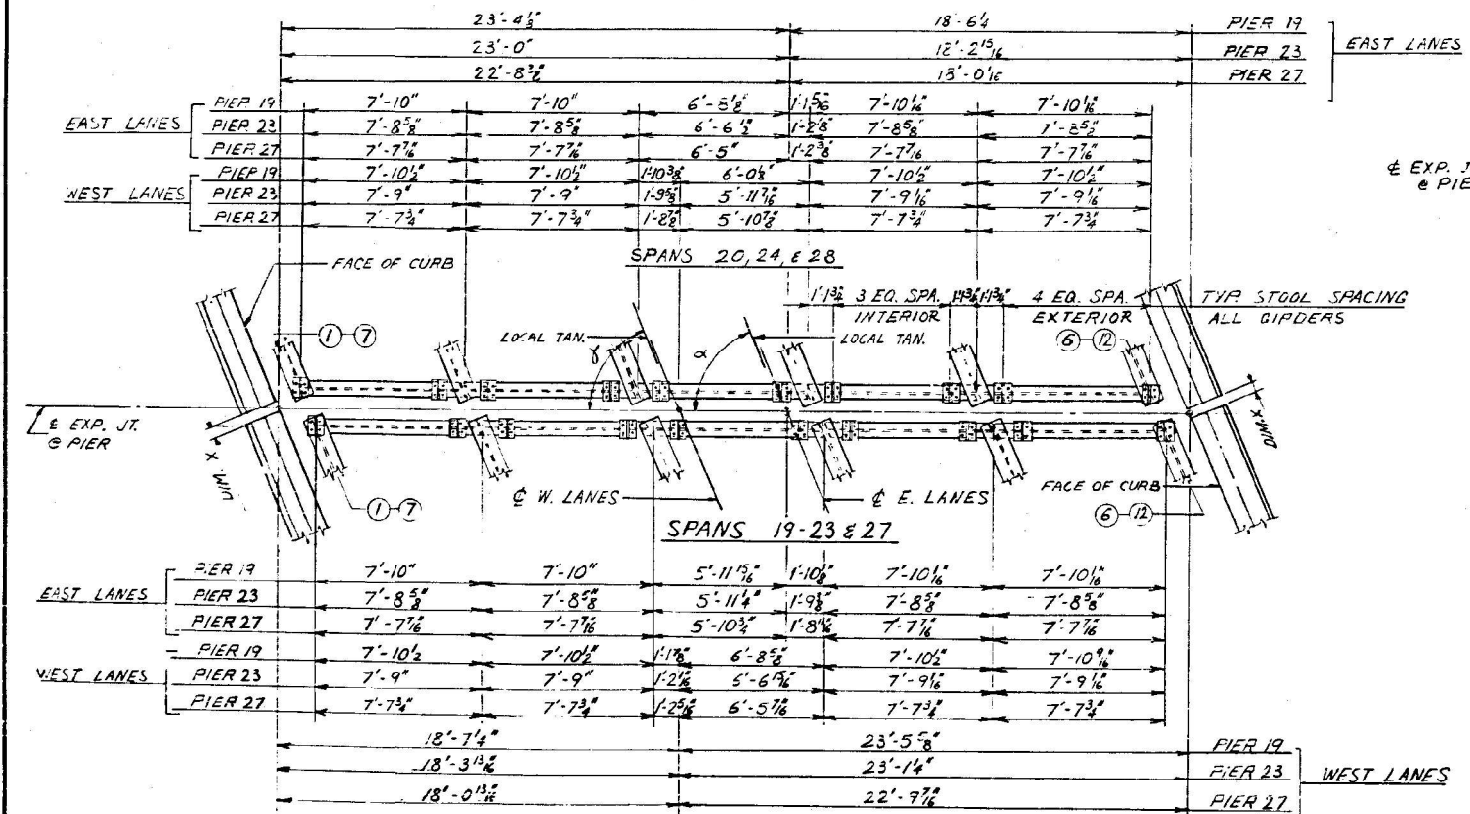 23'-4 1/8" 18'-6 1/4 PIER 19
23'-0" PIER 23
22'-8 3/8" PIER 27
EAST LANES
EAST LANES
PIER 19 7'-10" 7'-10" 6'-8 1/8" 1'-1 5/16" 7'-10 1/16" 7'-10 1/16"
PIER 23 7'-8 5/8" 7'-8 5/8" 6'-6 1/2" 1'-2 1/8" 7'-8 5/8"
PIER 27 7'-7 7/16" 7'-7 7/16" 6'-5" 1'-2 3/8" 7'-7 7/16 7'-7 7/16"
WEST LANES
PIER 19 7'-10 1/2" 7'-10 1/2" 1'-10 3/8" 6'-0 1/2" 7'-10 1/2" 7'-10 1/2"
PIER 23 7'-9" 7'-9" 1'-9 5/8" 5'-11 7/16" 7'-9 1/16" 7'-9 1/16"
PIER 27 7'-7 3/4" 7'-7 3/4" 1'-8 7/8" 5'-10 7/8" 7'-7 3/4" 7'-7 3/4"
₵ EXP. J
@ PIE
SPANS 20, 24, & 28
FACE OF CURB
1'-1 3/4" 3 EQ. SPA. INTERIOR 1'-1 3/4" 1'-1 3/4" 4 EQ. SPA. EXTERIOR
TYP. STOOL SPACING
ALL GIRDERS
1-7
LOCAL TAN.
γ
α
LOCAL TAN.
6-12
₵ EXP. JT.
@ PIER
DIM. X
DIM. X
1-7
₵ W. LANES
₵ E. LANES
FACE OF CURB
6-12
SPANS 19-23 & 27
EAST LANES
PIER 19 7'-10" 7'-10" 5'-11 15/16" 1'-10 1/8" 7'-10 1/16" 7'-10 1/16"
PIER 23 7'-8 5/8" 7'-8 5/8" 5'-11 1/4" 1'-9 3/8" 7'-8 5/8" 7'-8 5/8"
PIER 27 7'-7 7/16" 7'-7 7/16" 5'-10 3/4" 7'-7 7/16" 7'-7 7/16"
WEST LANES
PIER 19 7'-10 1/2 7'-10 1/2" 1'-1 7/8" 6'-8 5/8" 7'-10 1/2" 7'-10 9/16"
PIER 23 7'-9" 7'-9" 1'-2 1/16" 7'-9 1/16" 7'-9 1/16"
PIER 27 7'-7 3/4" 7'-7 3/4" 1'-2 5/16" 6'-5 7/16" 7'-7 3/4" 7'-7 3/4"
18'-7 1/4" 23'-5 5/8" PIER 19
18'-3 13/16" 23'-1 1/4" PIER 23
18'-0 13/16" 22'-9 7/16" PIER 27
WEST LANES